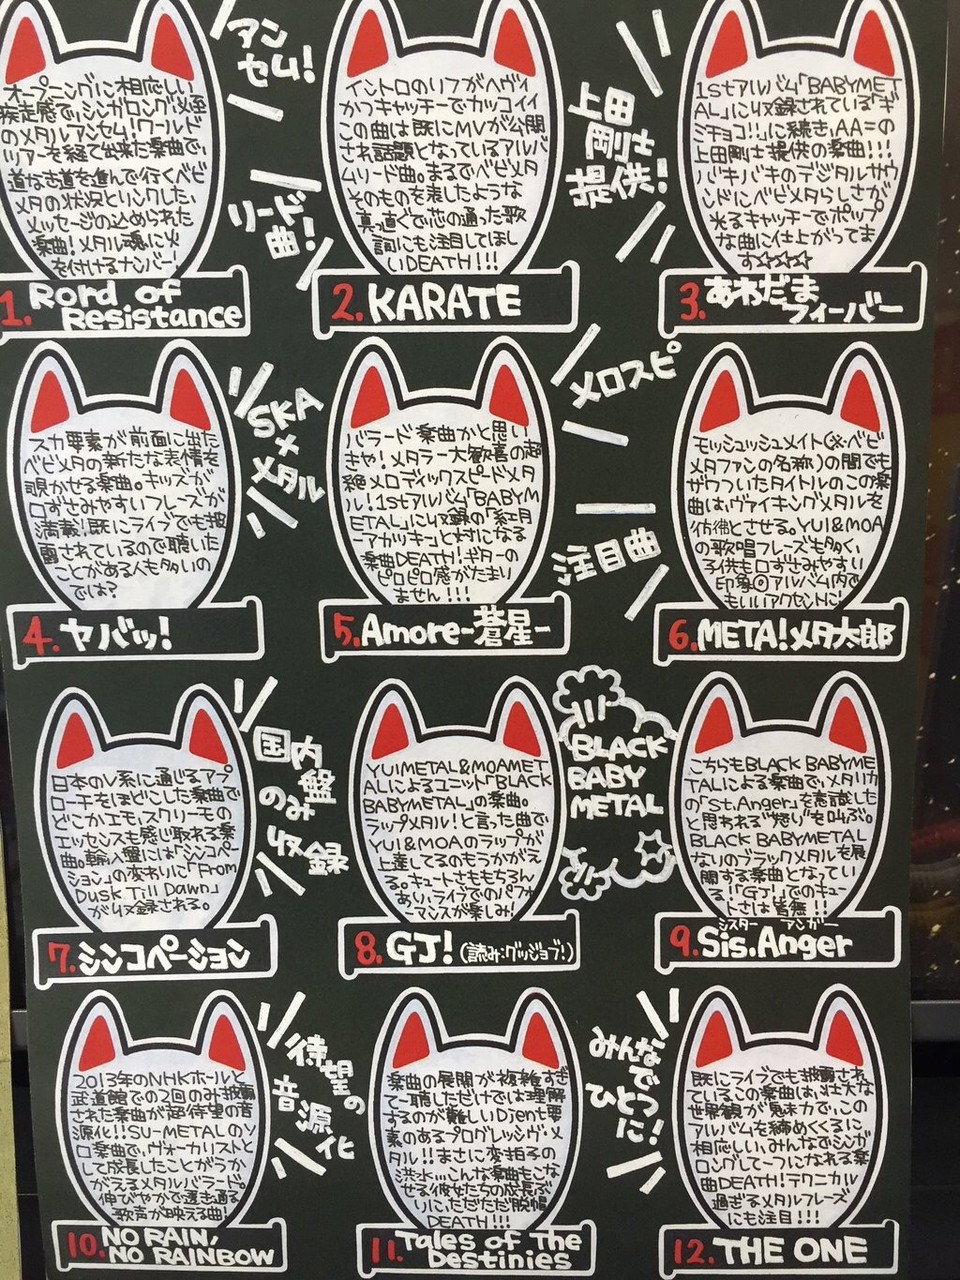 オープニングに相応しい
疾走感で、シンガロング必至
のメタルアンセム!ワールド
ツアーを経て出来た楽曲で、
道なき道を進んで行くベビ
メタの状況とリンクした、
メッセージの込められた
楽曲!メタル魂に火
を付けるナンバー!
1. Rord of
Resistance
アン
セム!
リード
曲!
イントロのリフがヘヴィ
かつキャッチーでカッコイイ
この曲は既にMVが公開
され話題となっているアルバ
ムリード曲。まるでベビメタ
そのものを表したような
真っ直ぐで芯の通った歌
詞にも注目してほし
いDEATH!!!
2. KARATE
上田
剛士
提供!
1stアルバム「BABYMET
AL」に収録されている「ギ
ミチョコ!!」に続き、AA=の
上田剛士提供の楽曲!!!
バキバキのデジタルサウ
ンドにベビメタらしさが
光るキャッチーでポップ
な曲に仕上がってま
す☆☆☆☆
3. あわだま
フィーバー
スカ要素が前面に出た
ベビメタの新たな表情を
覗かせる楽曲。キッズが
口ずさみやすいフレーズが
満載!既にライブでも披
露されているので聴いた
ことがある人も多いの
では?
4. ヤバッ!
SKA
×
メタル
バラード楽曲かと思い
きや!メタラー大歓喜の超
絶メロディックスピードメタ
ル!1stアルバム「BABYM
ETAL」に収録の「紅月
-アカツキ-」と対になる
楽曲DEATH!ギターの
ピロピロ感がたまり
ません!!!
5. Amore-蒼星-
メロスピ
注目曲
モッシュッシュメイト(※ベビ
メタファンの名称)の間でも
ザワついたタイトルのこの楽
曲は、ヴァイキングメタルを
彷彿とさせる。YUI&MOA
の歌唱フレーズも多く、
子供も口ずさみやすい
印象◎アルバム内で
もいいアクセントに!
6. META!メタ太郎
日本のV系に通じるアプ
ローチをほどこした楽曲で
どこかエモ、スクリーモの
エッセンスも感じ取れる楽
曲。輸入盤には「シンコペー
ション」の変わりに「From
Dusk Till Dawn」
が収録される。
7. シンコペーション
国内
盤
のみ
収録
YUIMETAL&MOAMET
ALによるユニット「BLACK
BABYMETAL」の楽曲。
ラップメタル!と言った曲で
YUI&MOAのラップが
上達してるのもうかがえ
る。キュートさももちろん
あい、ライブでのパフォ
マンスが楽しみ!
8. GJ! (読み:グッジョブ!)
BLACK
BABY
METAL
こちらもBLACK BABYME
TALによる楽曲で、メタリカ
の「St.Anger」を意識した
と思われる"怒り"を叫ぶ。
BLACK BABYMETAL
ないのブラックメタルを展
開する楽曲となってい
る!「GJ!」でのキュー
トさは皆無!!
シスター アンガー
9. Sis.Anger
2013年のNHKホールと
武道館での2回のみ披露
された楽曲が超待望の音
源化!!SU-METALのソ
ロ楽曲で、ヴォーカリストと
して成長したことがうか
がえるメタルバラード。
伸びやかで透き通る
歌声が映える曲!
10. NO RAIN,
NO RAINBOW
待望の
音源化
楽曲の展開が複雑すぎ
て一聴しただけでは理解
するのが難しいDjent要
素のあるプログレッシヴ・メ
タル!!まさに変拍子の
洪水…こんな楽曲もこな
せる彼女たちの成長ぶ
りに、ただただ脱帽
DEATH!!!
11. Tales of The
Destinies
みんなで
ひとつ
に!
既にライブでも披露され
ているこの楽曲は、壮大な
世界観が魅力で、この
アルバムを締めくくるに
相応しい、みんなでシンガ
ロングして一つになれる楽
曲DEATH!テクニカル
過ぎるメタルフレーズ
にも注目!!!
12. THE ONE